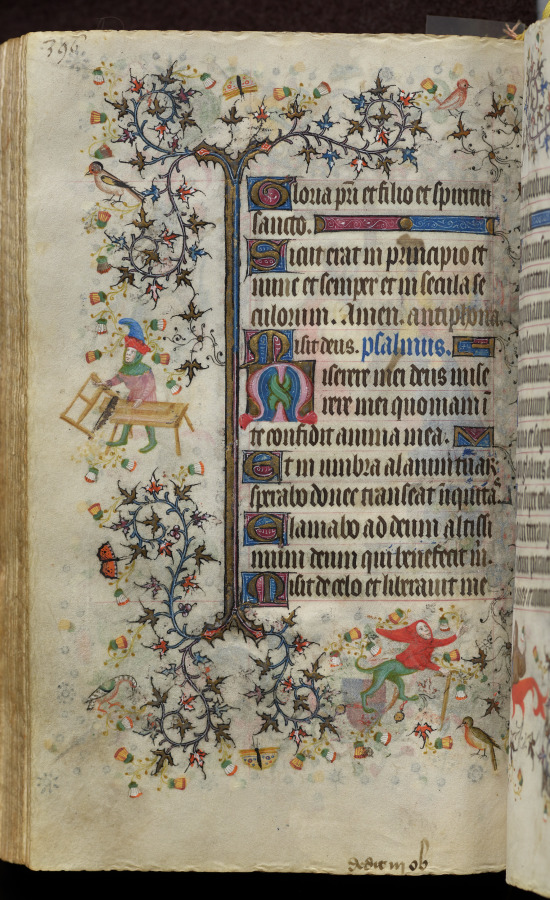 395
Gloria pri et filio et spiritui
sancto.
Sicut erat in principio et
nunc et semper et in secula se
culorum. Amen. antiphona.
Misit deus. psalmus.
Miserere mei deus mise
rere mei quoniam i
te confidit anima mea.
Et in umbra alarum tuar
sperabo donec transeat iniquita
Clamabo ad deum altissi
mum deum qui benefecit m.
Misit de celo et liberavit me